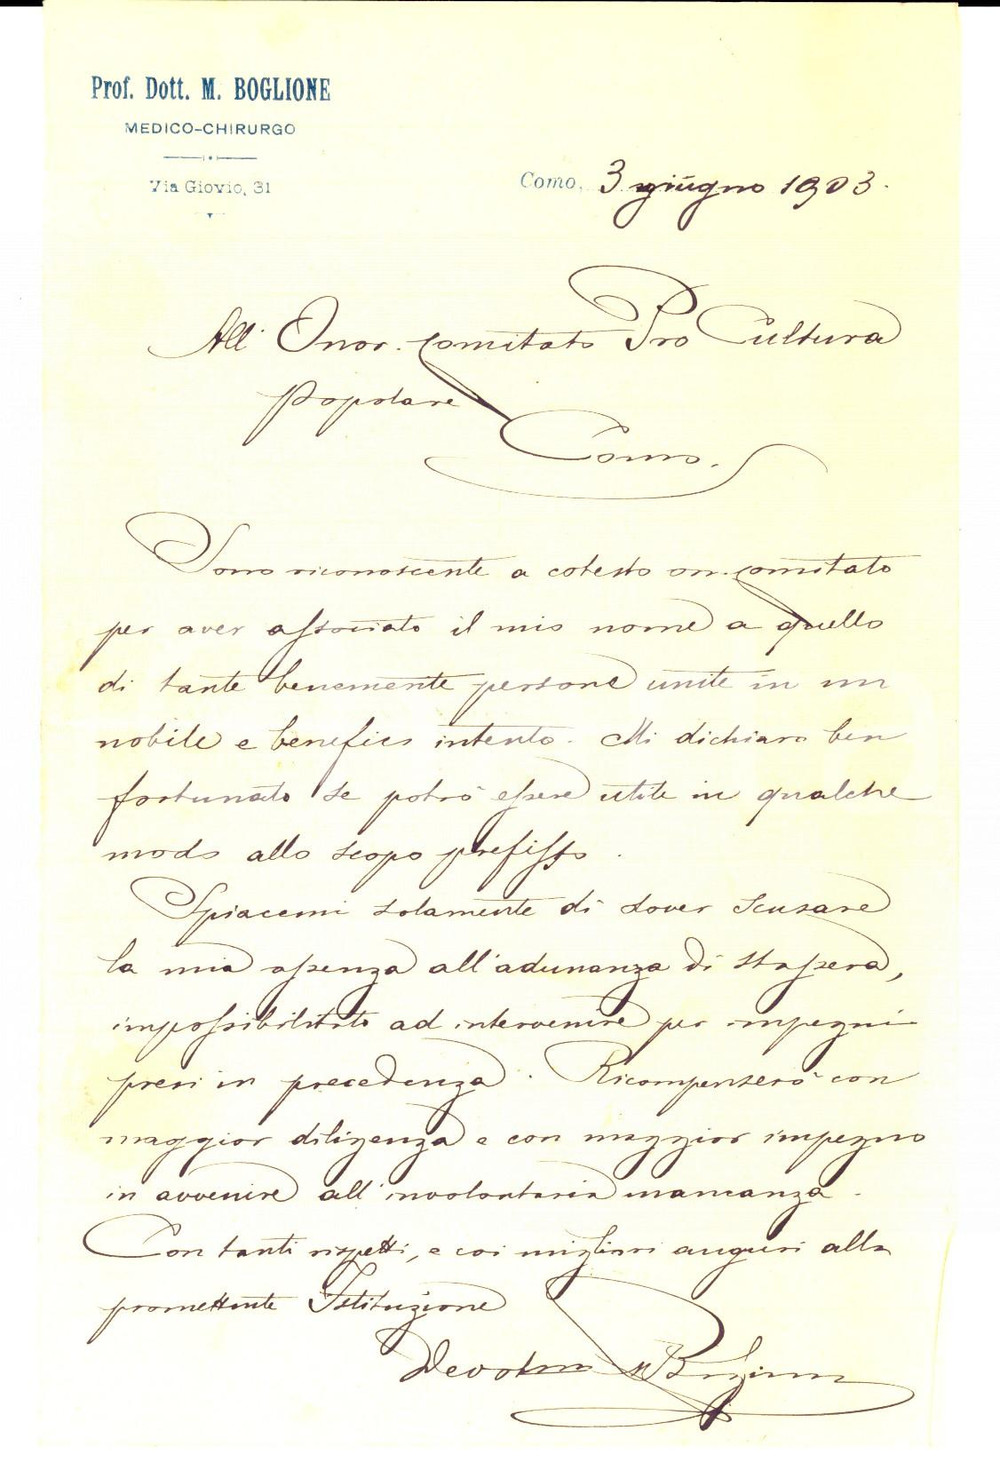 Prof. Dott. M. BOGLIONE
MEDICO-CHIRURGO
Via Giovio, 31
Como, 3 giugno 1903.
All' Onor. comitato Pro Cultura
popolare
Como.
Sono riconoscente a cotesto on. comitato
per aver associato il mio nome a quello
di tante benemerite persone unite in un
nobile e benefico intento. Mi dichiaro ben
fortunato se potrò essere utile in qualche
modo allo scopo prefisso.
Spiacemi solamente di dover scusare
la mia assenza all'adunanza di stassera,
impossibilitato ad intervenire per impegni
presi in precedenza. Ricompenserò con
maggior diligenza e con maggior impegno
in avvenire all'involontaria mancanza.
Con tanti rispetti, e coi migliori auguri alla
promettente Istituzione
Devotmo M Boglione